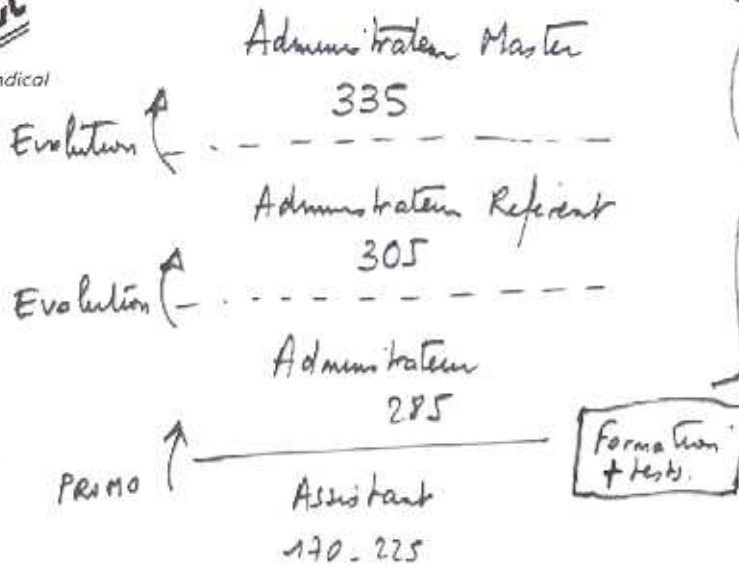 ndical
Administrateur Master
335
Evolution
Administrateur Référent
305
Evolution
Administrateur
285
Formation
+ tests.
PROMO
Assistant
170-225